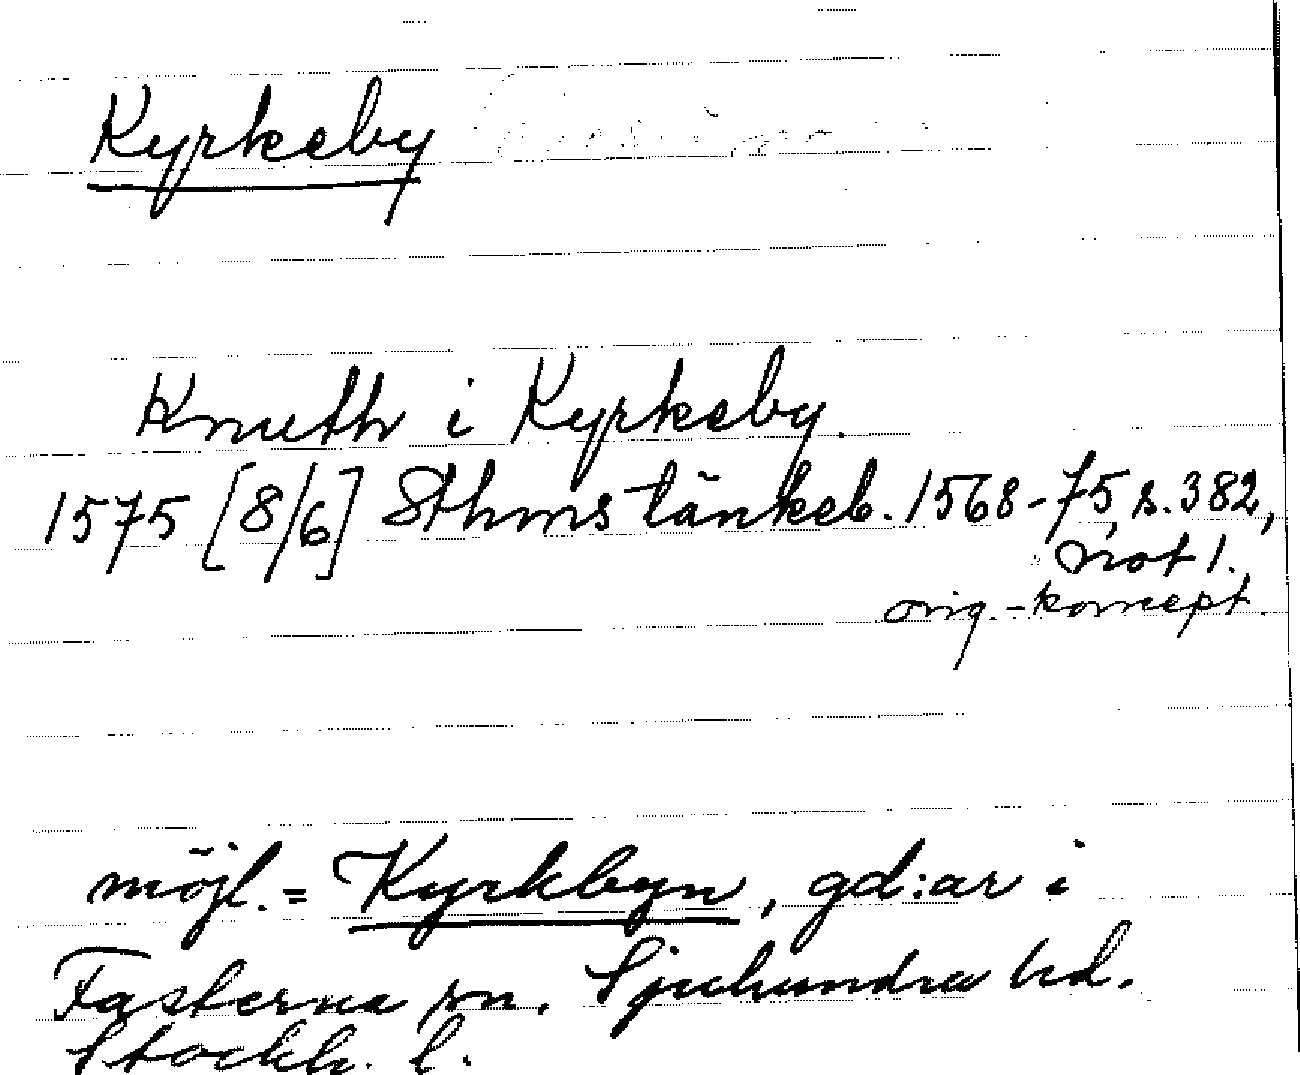 Kyrkeby
Knuth i Kyrkeby.
1575 [8/6] Sthms tänkeb. 1568-75, s. 382,
not 1.
orig.-koncept.
möjl. = Kyrkbyn, gd:ar i
Fasterna sn. Sjuhundra hd.
Stockh. l.